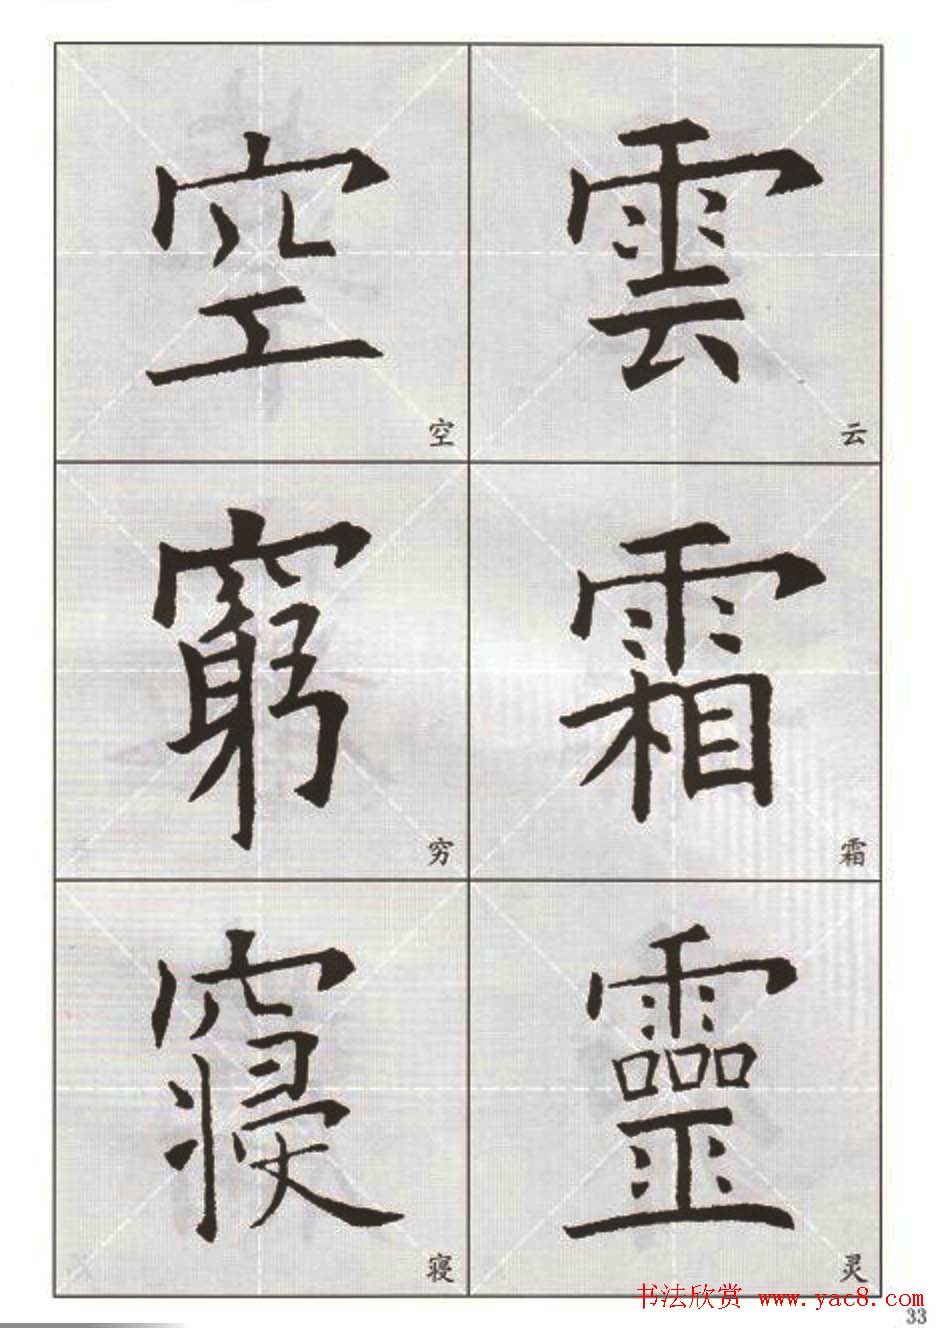 空 雲
空 云
窮 霜
穷 霜
寢 靈
寝 灵
书法欣赏 www.yac8.com
33